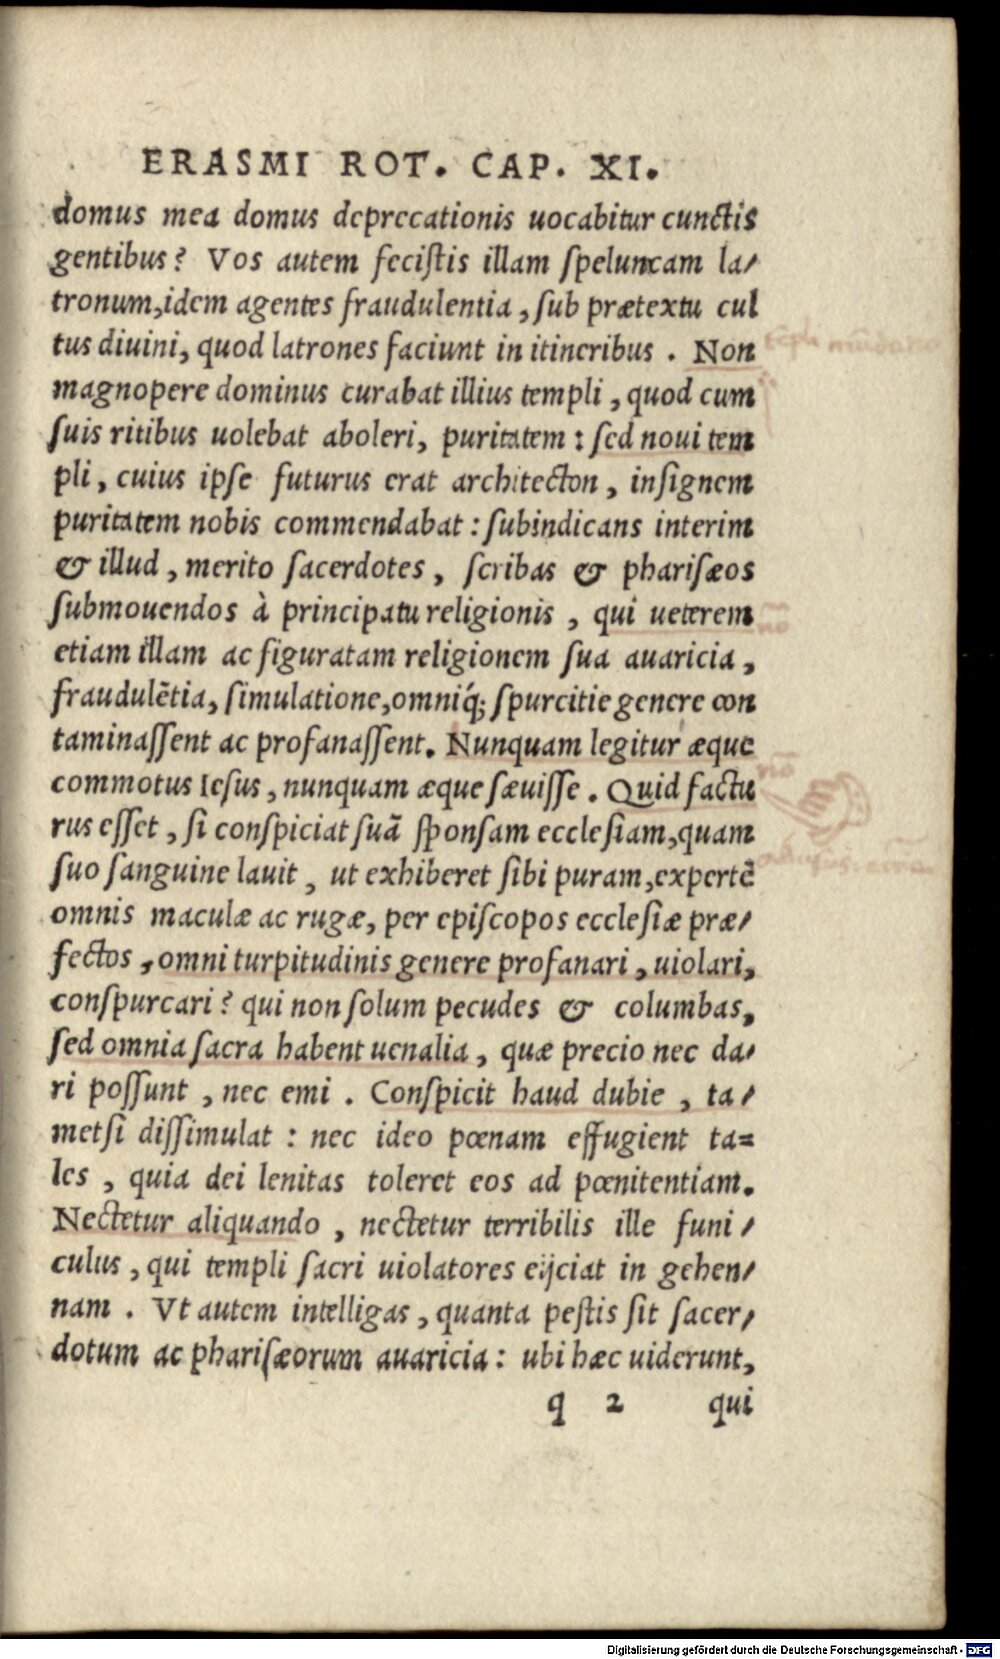 ERASMI ROT. CAP. XI.
domus mea domus deprecationis uocabitur cunctis
gentibus? Vos autem fecistis illam speluncam la/
tronum,idem agentes fraudulentia, sub prætextu cul
tus diuini, quod latrones faciunt in itineribus. Non
magnopere dominus curabat illius templi, quod cum
suis ritibus uolebat aboleri, puritatem: sed noui tem
pli, cuius ipse futurus erat architecton, insignem
puritatem nobis commendabat: subindicans interim
& illud, merito sacerdotes, scribas & pharisæos
submouendos à principatu religionis, qui ueterem
etiam illam ac figuratam religionem sua auaricia,
fraudulētia, simulatione,omniq́; spurcitie genere con
taminassent ac profanassent. Nunquam legitur æque
commotus Iesus, nunquam æque sæuisse. Quid factu
rus esset, si conspiciat suā sponsam ecclesiam,quam
suo sanguine lauit, ut exhiberet sibi puram,expertē
omnis maculæ ac rugæ, per episcopos ecclesiæ præ/
fectos, omni turpitudinis genere profanari, uiolari,
conspurcari? qui non solum pecudes & columbas,
sed omnia sacra habent uenalia, quæ precio nec da/
ri possunt, nec emi. Conspicit haud dubie, ta/
metsi dissimulat: nec ideo pœnam effugient ta=
les, quia dei lenitas toleret eos ad pœnitentiam.
Nectetur aliquando, nectetur terribilis ille funi/
culus, qui templi sacri uiolatores eijciat in gehen/
nam. Vt autem intelligas, quanta pestis sit sacer/
dotum ac pharisæorum auaricia: ubi hæc uiderunt,
q 2 qui
Digitalisierung gefördert durch die Deutsche Forschungsgemeinschaft - DFG